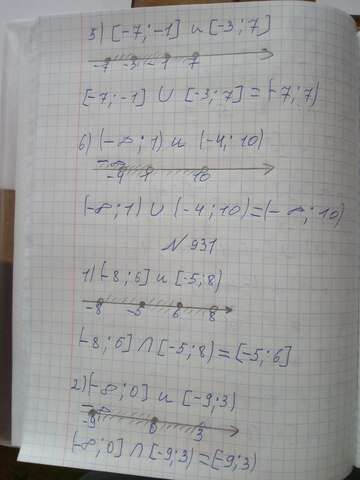 5) [-7; -1] и [-3; 7]
-7 -3 -1 7
[-7; -1] ∪ [-3; 7] = (-7; 7)
6) (-∞; 1) и (-4; 10)
-∞ -4 1 10
(-∞; 1) ∪ (-4; 10) = (-∞; 10)
№931
1) [-8; 6] и [-5; 8)
-8 -5 6 8
[-8; 6] ∩ [-5; 8) = [-5; 6]
2) (-∞; 0] и [-9; 3)
-∞ -9 0 3
(-∞; 0] ∩ [-9; 3) = [-9; 3)